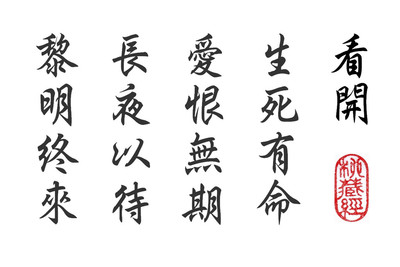 看開
生死有命
愛恨無期
長夜以待
黎明終來